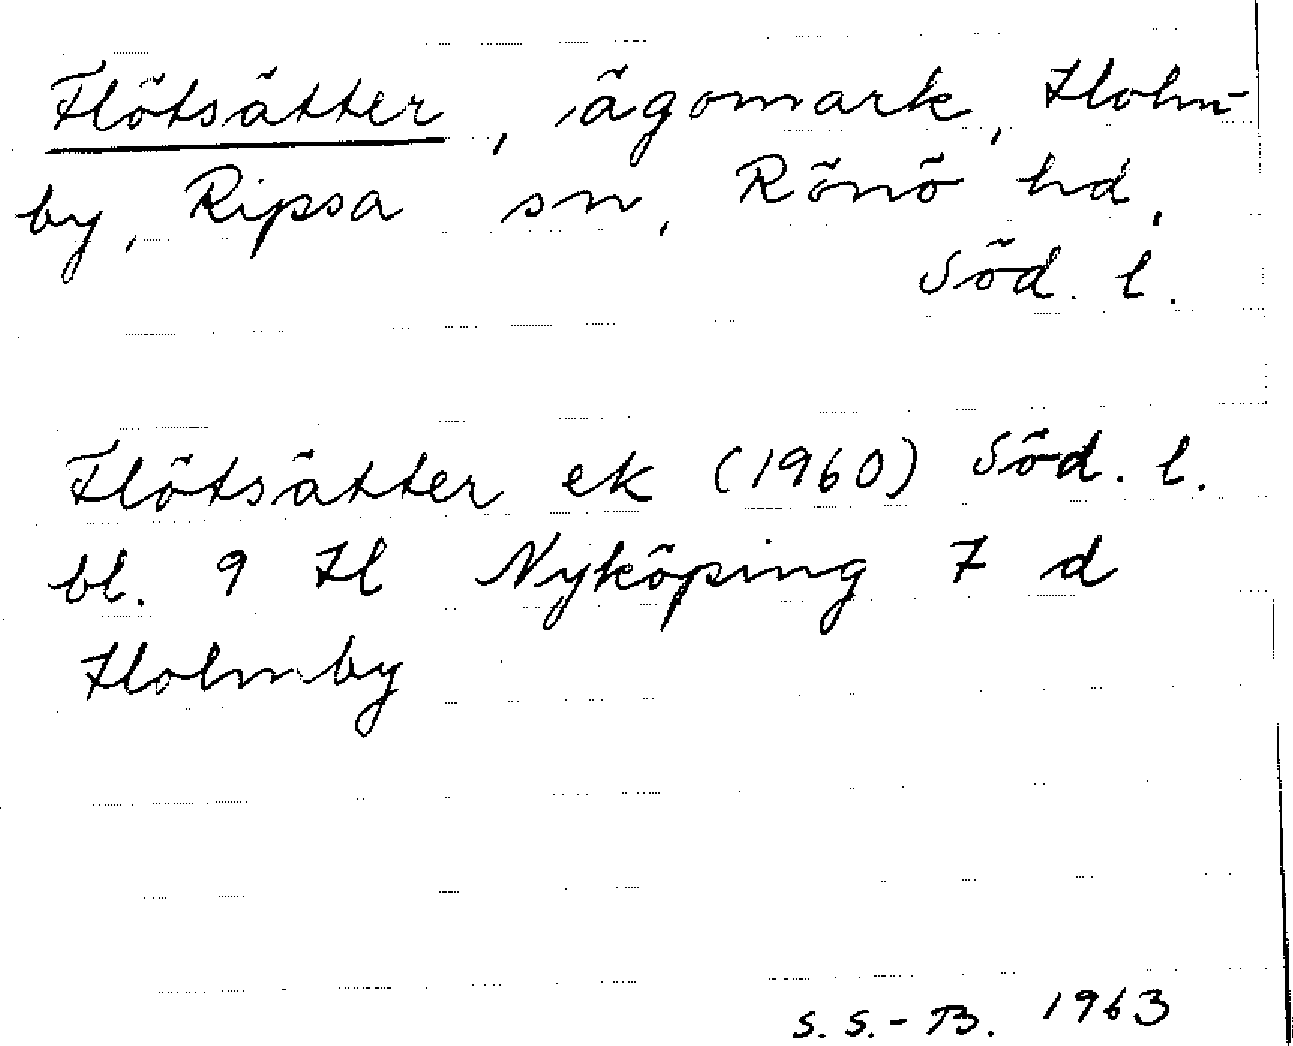 Flötsätter, ägomark, Holm-
by, Ripsa sn, Rönö hd,
Söd. l.
Flötsätter ek (1960) Söd. l.
bl. 9 H Nyköping 7 d
Holmby
S. S.-B. 1963